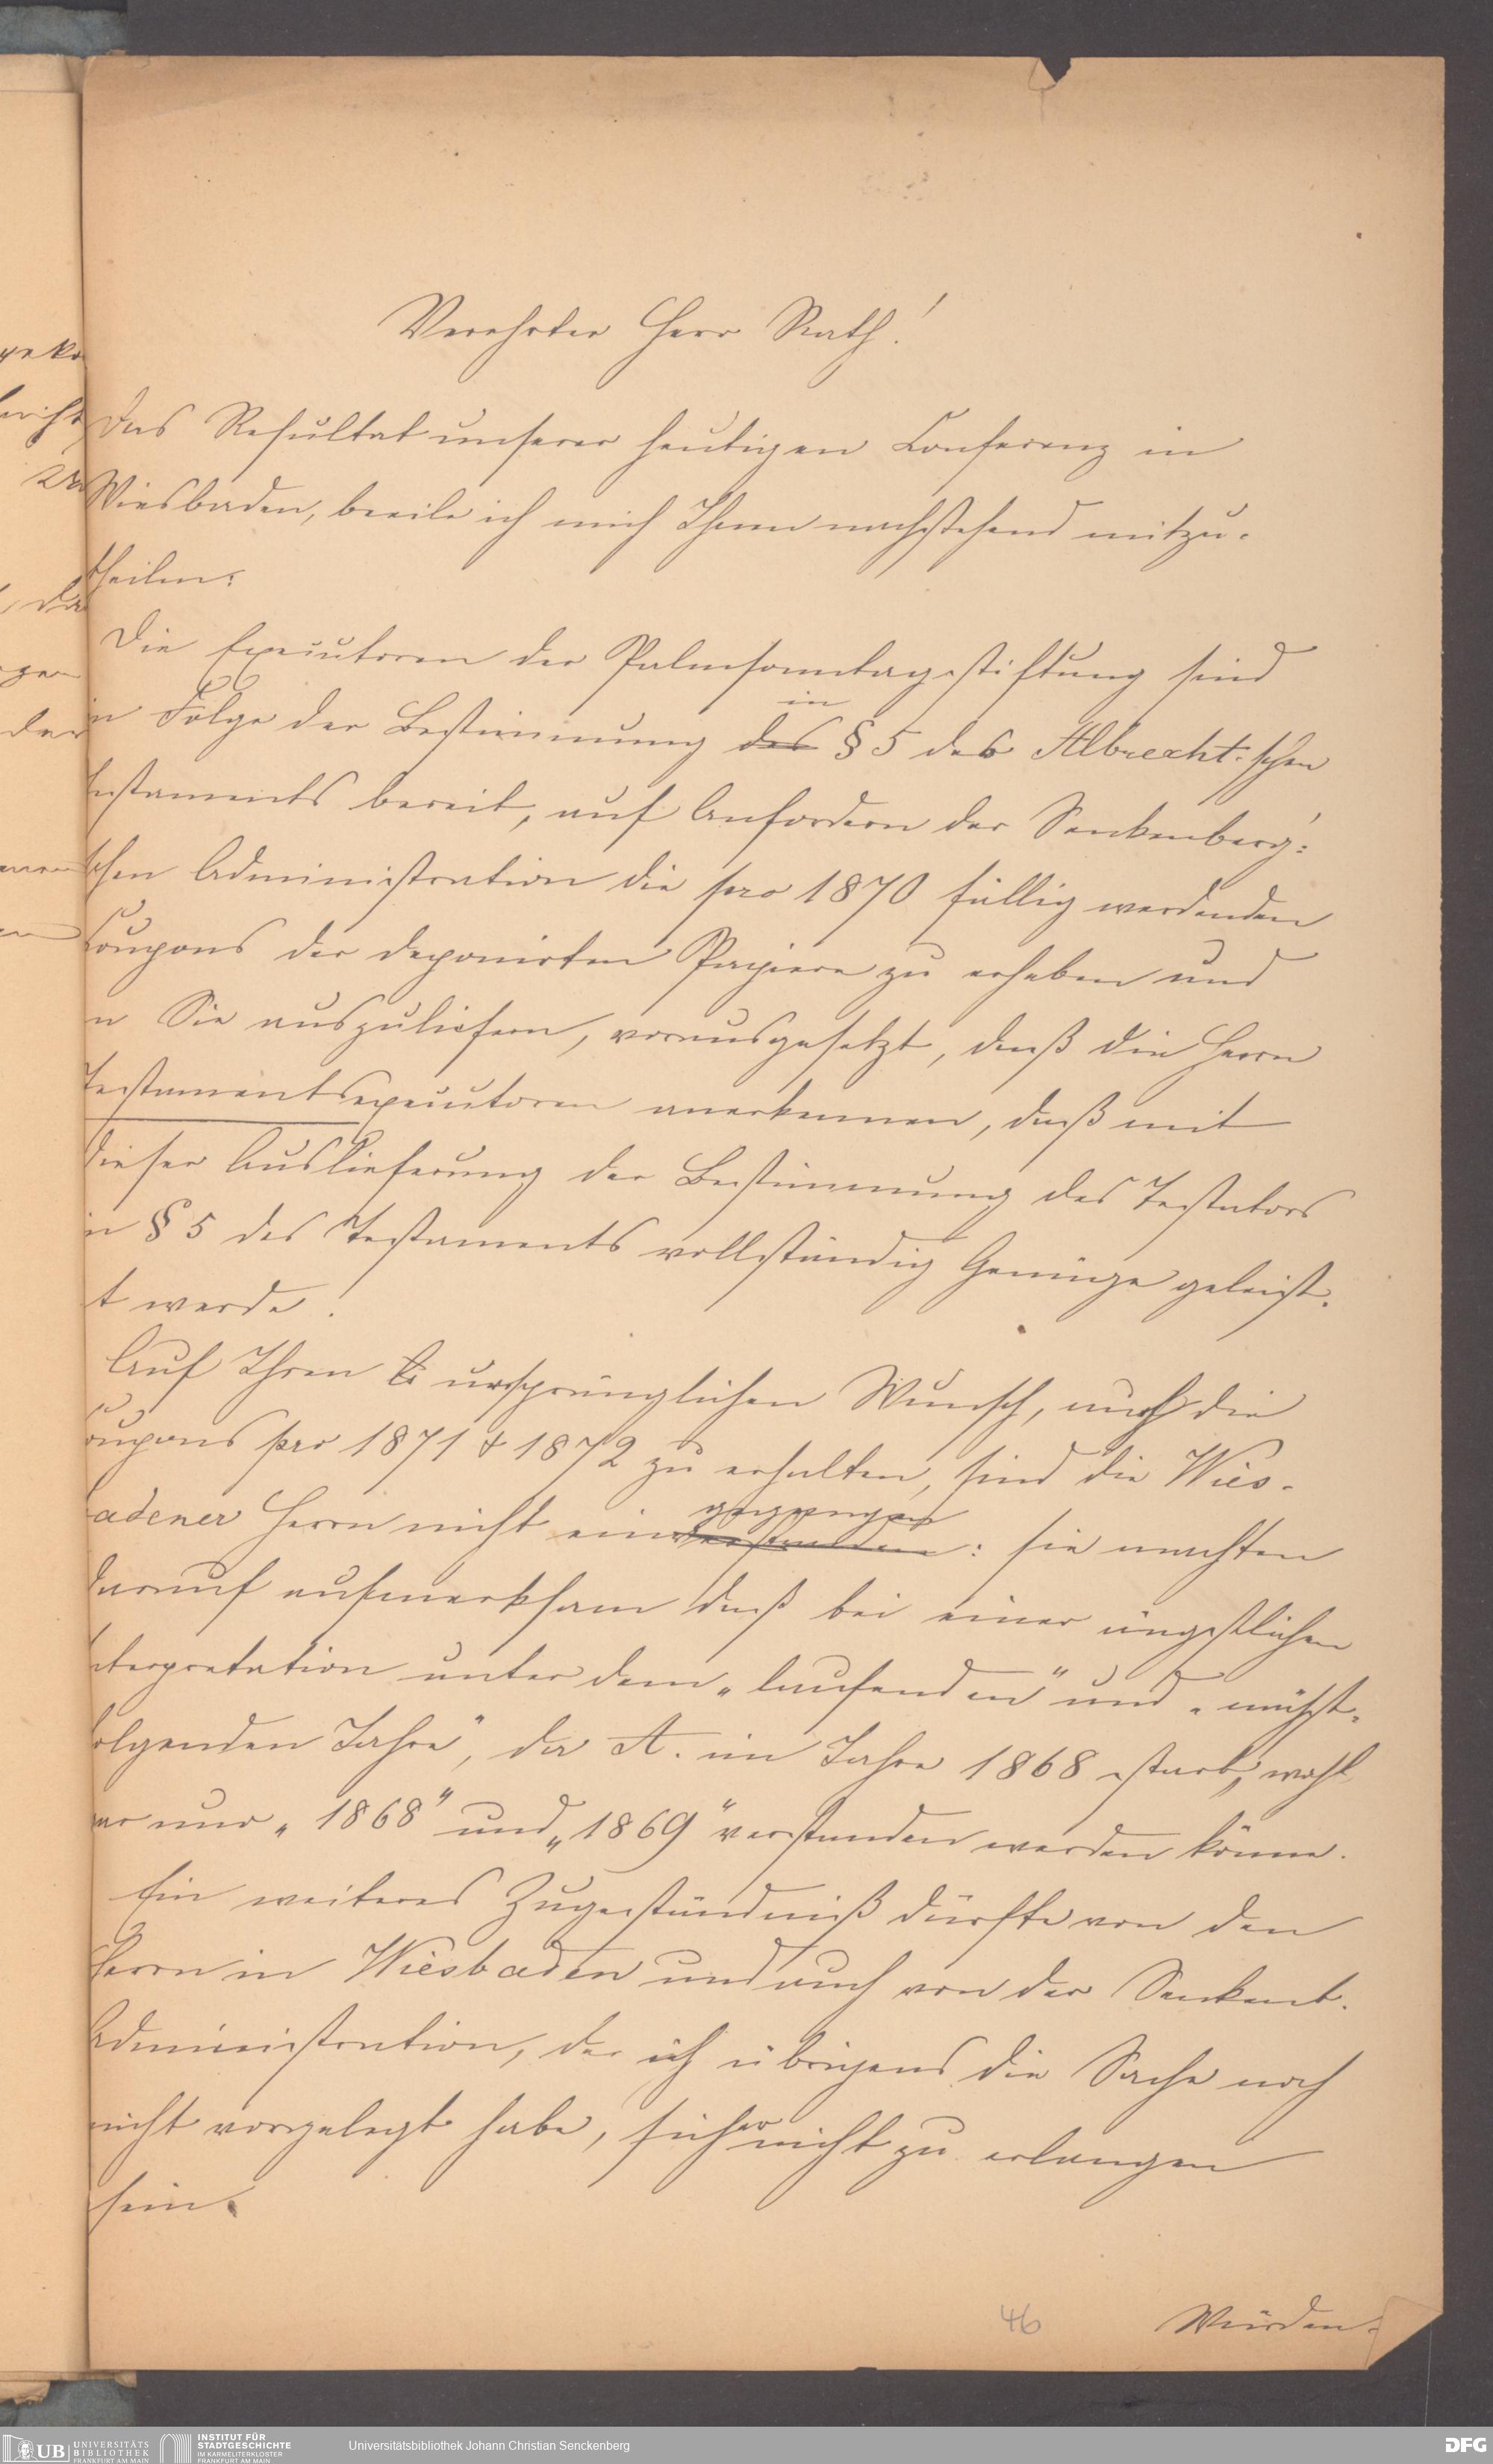 Verehrter Herr Rath!
Das Resultat unserer heutigen Conferenz in
Wiesbaden, beeile ich mich Ihnen nachstehend mitzu-
theilen:
Die Executoren der Palmsonntagsstiftung sind
in Folge der Bestimmung des in § 5 des Albrecht'schen
Testaments bereit, auf Anfordern der Senkenberg'-
schen Administration die pro 1870 fällig werdenden
Coupons der deponirten Papiere zu erheben und
an Sie auszuliefern, vorausgesetzt, daß die Herrn
Testamentsexecutoren anerkennen, daß mit
dieser Auslieferung der Bestimmung des Testators
in § 5 des Testaments vollständig Genüge geleist-
et werde.
Auf Ihren ursprünglichen Wunsch, auch die
Coupons pro 1871 & 1872 zu erhalten, sind die Wies-
badener Herrn nicht einverstanden gegangen: sie machten
darauf aufmerksam daß bei einer ängstlichen
Interpretation unter dem „laufenden" und „nächst-
folgenden Jahre", da A. im Jahre 1868 starb, wohl
gar nur „1868" und „1869" verstanden werden könne.
Ein weiteres Zugeständniß dürfte von den
Herrn in Wiesbaden und auch von der Senkenb.
Administration, der ich übrigens die Sache noch
nicht vorgelegt habe, sicher nicht zu erlangen
sein.
46
Würden
geko
da
gen
der
UB UNIVERSITÄTS
BIBLIOTHEK
FRANKFURT AM MAIN
INSTITUT FÜR
STADTGESCHICHTE
IM KARMELITERKLOSTER
FRANKFURT AM MAIN
Universitätsbibliothek Johann Christian Senckenberg
DFG